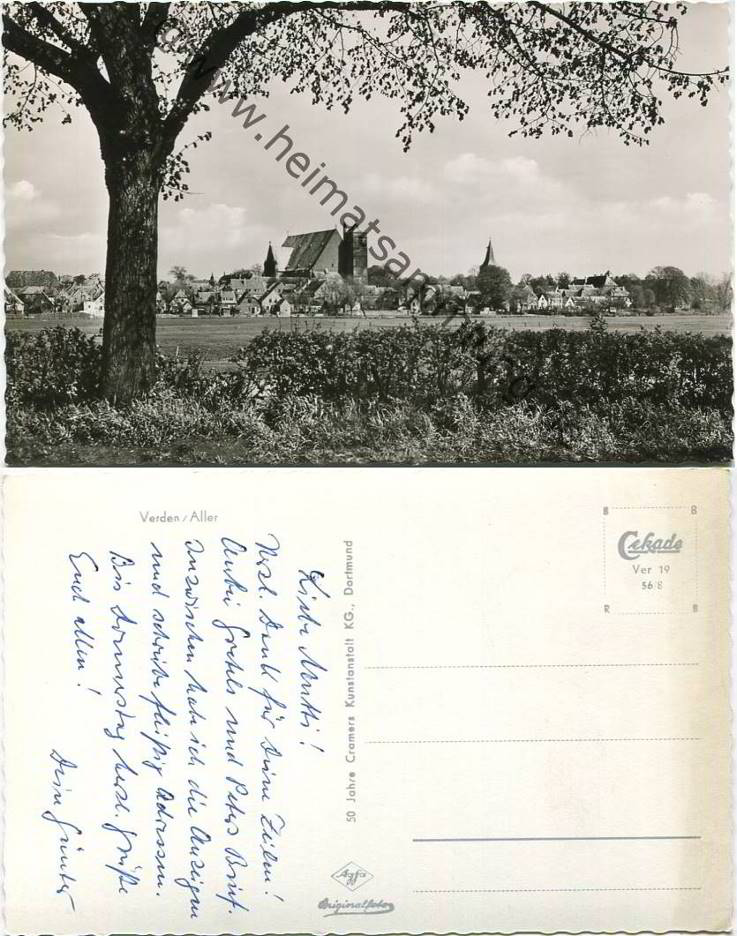 www.heimatsammlung.de
Verden/Aller
Liebe Mutti!
Herzl. Dank für Deine Zeilen!
und Peters Brief.
Inzwischen habe ich die Anzeigen
und schreibe fleißig Adressen.
Bis Donnerstag herzl. Grüße
Euch allen!
Dein Günter
50 Jahre Cramers Kunstanstalt KG., Dortmund
B B
Cekade
Ver 19
56/8
R B
Agfa
Originalfoto